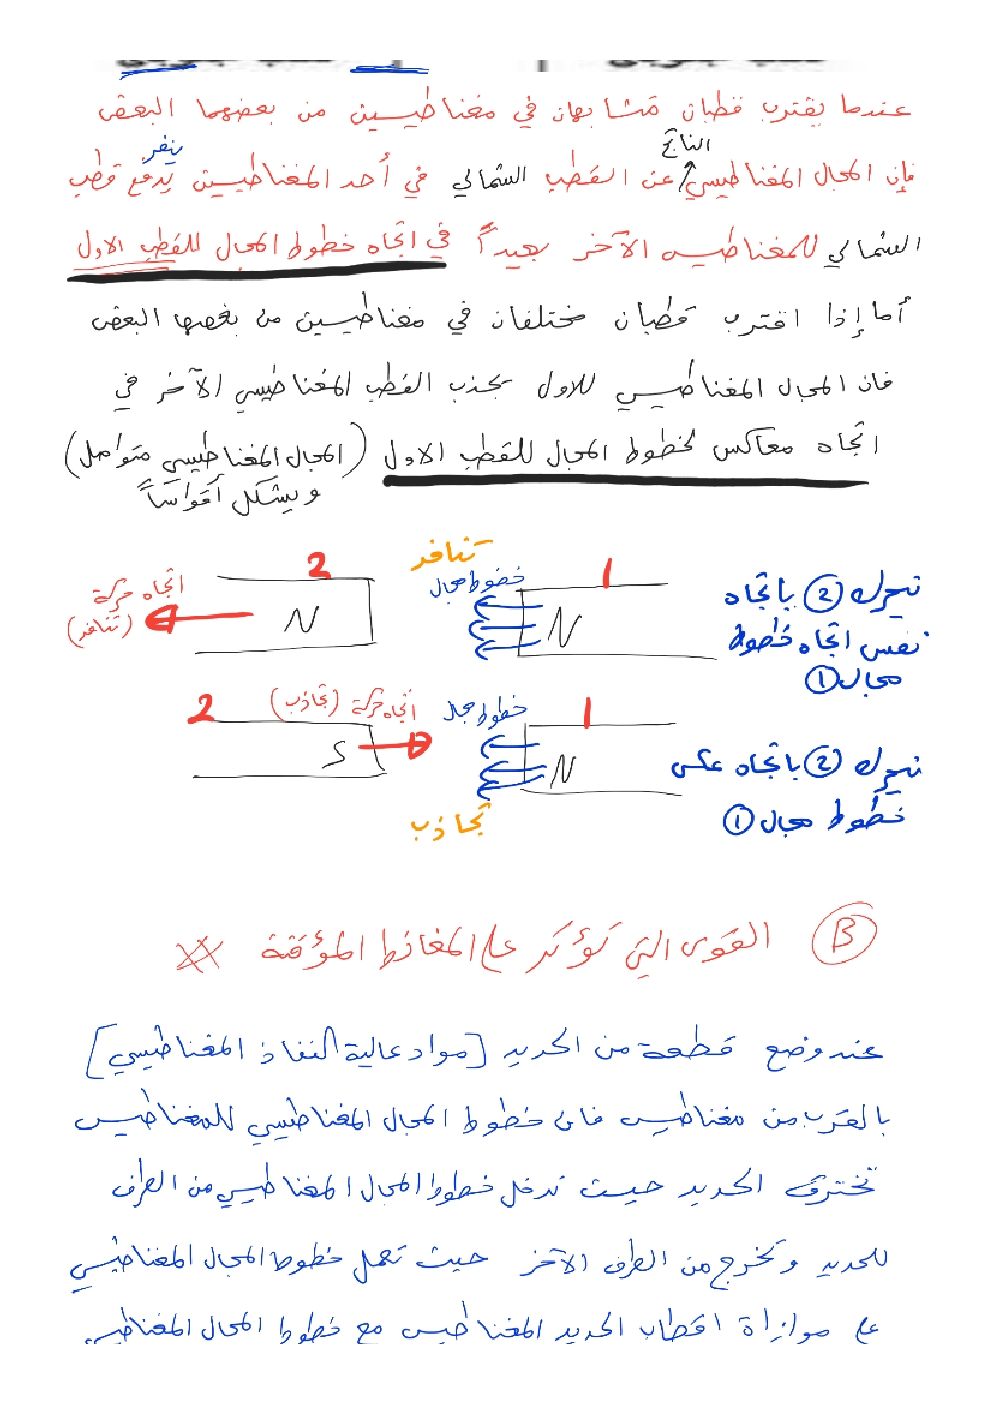 عندما يقترب قطبان متشابهان في مغناطيسين من بعضهما البعض
الناتج
ينفر
فإن المجال المغناطيسي عن القطب الشمالي في أحد المغناطيسين يدفع قطب
الشمالي للمغناطيس الآخر بعيداً في اتجاه خطوط المجال للقطب الاول
أما إذا اقترب قطبان مختلفان في مغناطيسين من بعضها البعض
فان المجال المغناطيسي للاول يجذب القطب المغناطيسي الآخر في
اتجاه معاكس لخطوط المجال للقطب الاول (المجال المغناطيسي متواصل)
ويشكل أقواساً
تنافر
2
1
اتجاه حركة
(تنافر)
N
خطوط مجال
N
تحرك ② باتجاه
نفس اتجاه خطوط
مجال ①
2
اتجاه حركة (تجاذب)
خطوط مجال
1
S
N
تحرك ② باتجاه عكس
خطوط مجال ①
تجاذب
B القوى التي تؤثر على المغانط المؤقتة
عند وضع قطعة من الحديد [مواد عالية النفاذ المغناطيسي]
بالقرب من مغناطيس فان خطوط المجال المغناطيسي للمغناطيس
تخترق الحديد حيث تدخل خطوط المجال المغناطيسي من الطرف
للحديد وتخرج من الطرف الآخر حيث تعمل خطوط المجال المغناطيسي
على موازاة اقطاب الحديد المغناطيس مع خطوط المجال المغناطيس